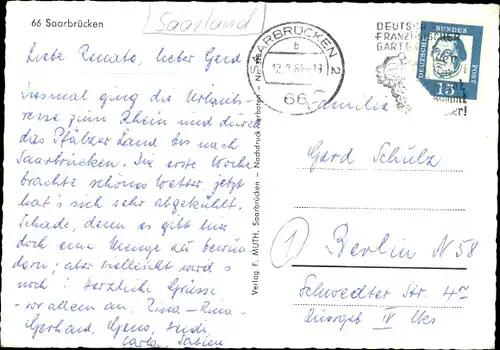 66 Saarbrücken
Saarland
Liebe Renate, lieber Gerd
Diesmal ging die Urlaubs-
reise zum Rhein und durch
das Pfälzer Land bis nach
Saarbrücken. Die erste Woche
brachte schönes Wetter, jetzt
hat's sich sehr abgekühlt.
Schade, denn es gibt hier
doch eine Menge zu bewun
dern; aber vielleicht wird's
noch! Herzliche Grüsse
vor allem an
Gerhard,
Carla, Sabine
Verlag F. MUTH, Saarbrücken - Nachdruck verboten -
SAARBRÜCKEN 2
b
66
DEUTSCH
FRANZÖSISCHER
GARTEN
DEUTSCHE BUNDESPOST
15
Familie
Gerd Schulz
1 Berlin N 58
Schwedter Str. 4a
Quergeb IV lks